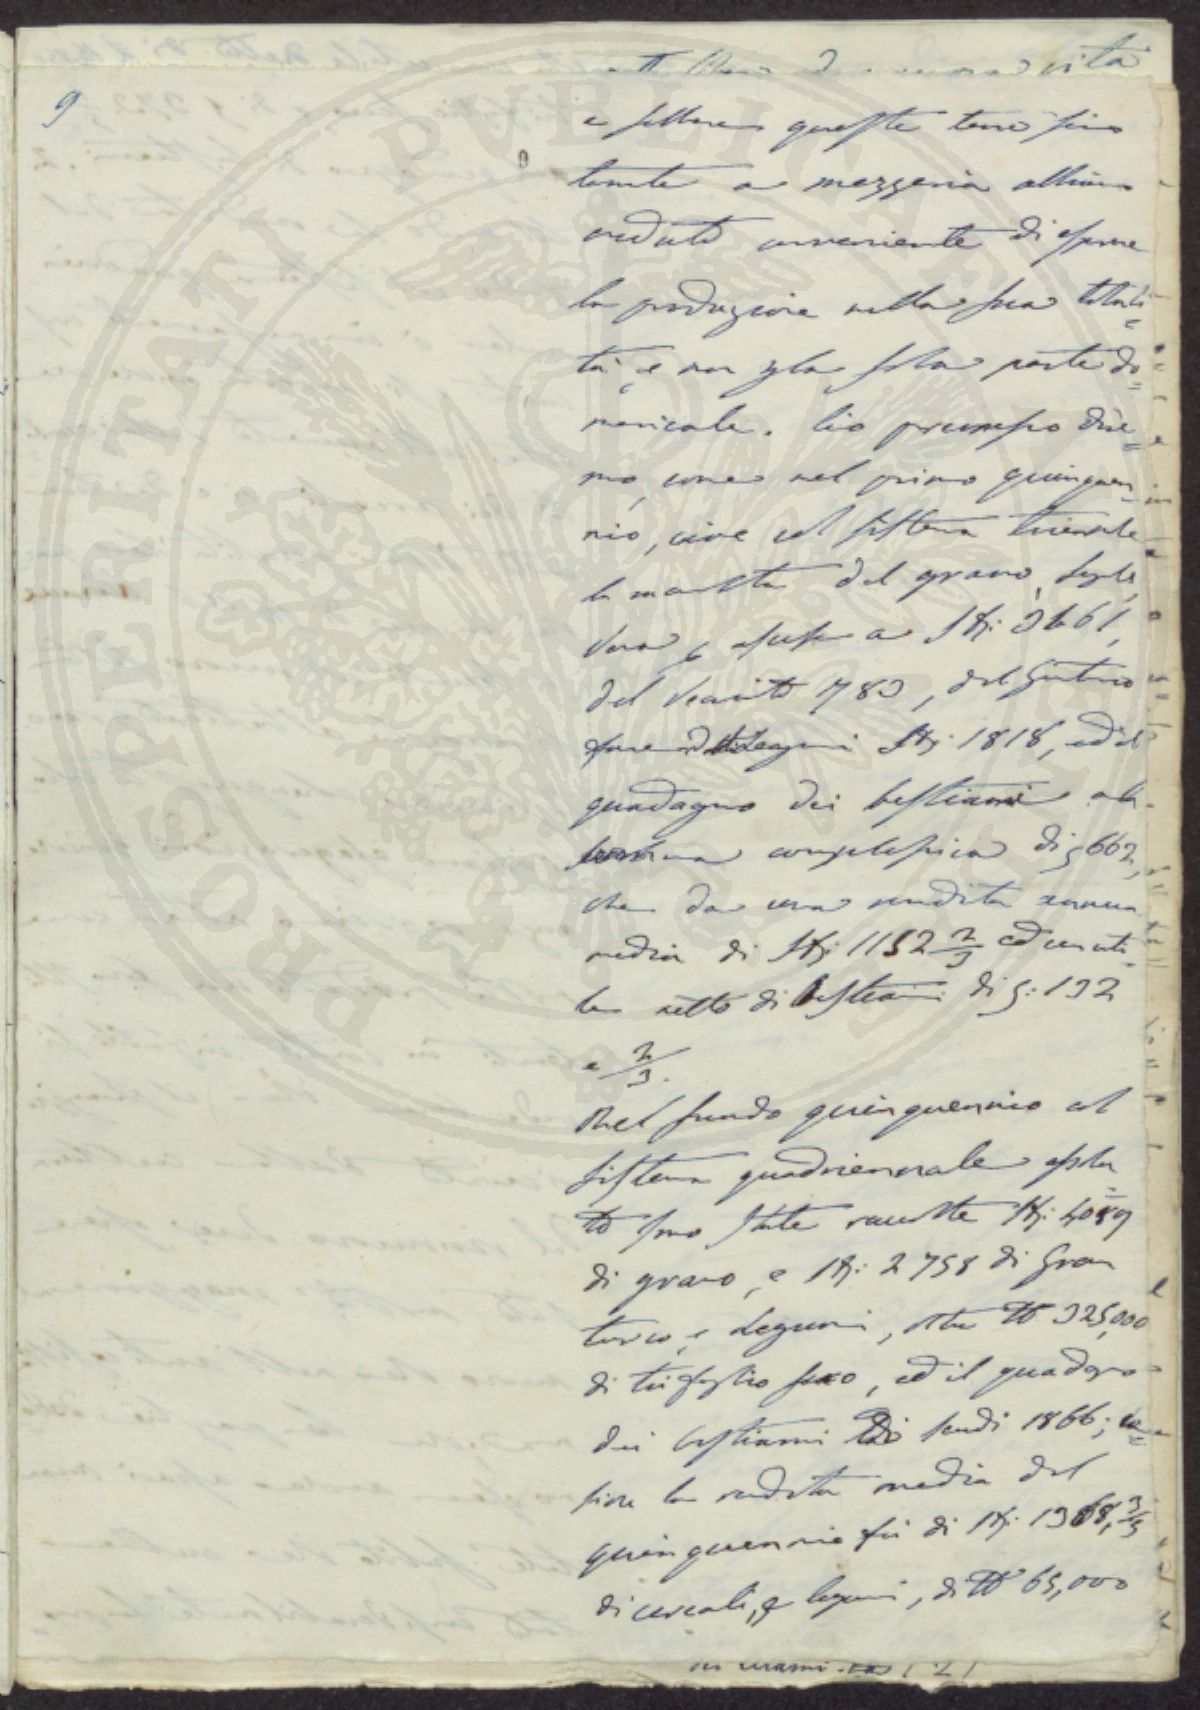 vita
9
e sebbene queste terre sino
tenute a mezzeria abbiamo
creduto conveniente di esporre
la produzione nella sua totali=
tà, e non per la sola parte do=
menicale. Ciò premesso dire=
mo, come nel primo quinquen=
nio, cioè col sistema triennale
la raccolta del grano, segale,
vena, ascese a Stj: 3661,
del veciato 783, del Granturco
fave e Legumi Stj: 1818, ed il
guadagno dei bestiami alla
somma complessiva di s 662,
che da una rendita annua
media di Stj: 1152 2/3 ed un uti=
le netto di bestiami di s: 132
e 2/3.
Nel secondo quinquennio col
sistema quadriennale
sono state raccolte Stj: 4089
di grano, e Stj: 2758 di Gran
turco, e Legumi, oltre tt 325,000
di trifoglio secco, ed il guadagno
dei bestiami di scudi 1866;
la rendita media del
quinquennio fu di Stj: 1368, 3/5
di cereali, e legumi, di tt 65,000
PROSPERITATI PUBLICAE